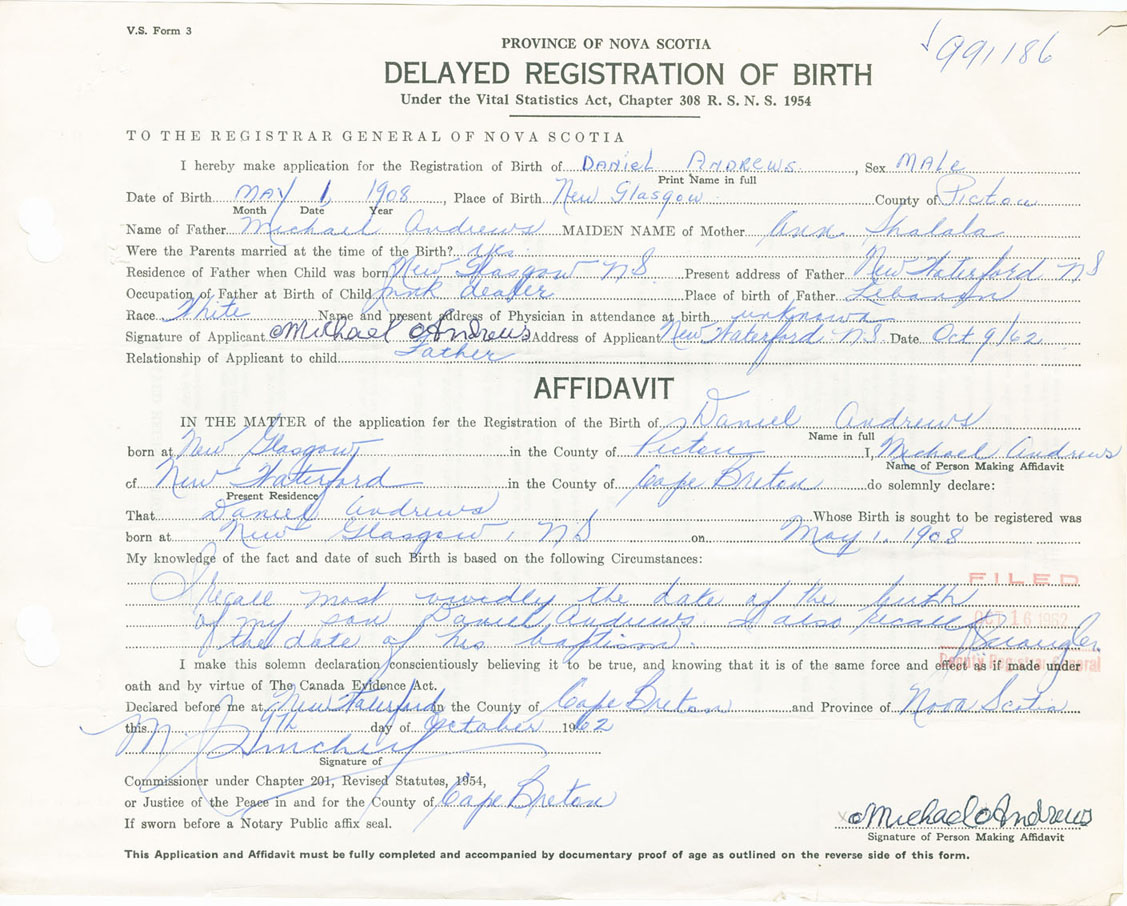 V.S. Form 3
991186
PROVINCE OF NOVA SCOTIA
DELAYED REGISTRATION OF BIRTH
Under the Vital Statistics Act, Chapter 308 R. S. N. S. 1954
TO THE REGISTRAR GENERAL OF NOVA SCOTIA
I hereby make application for the Registration of Birth of DANiEL ANDREWS, Sex MALE
Print Name in full
Date of Birth MAY 1, 1908, Place of Birth New Glasgow County of Pictou
Month Date Year
Name of Father Michael Andrews MAIDEN NAME of Mother Ann Shalala
Were the Parents married at the time of the Birth? yes
Residence of Father when Child was born New Glasgow NS Present address of Father New Waterford NS
Occupation of Father at Birth of Child junk dealer Place of birth of Father Lebanon
Race White Name and present address of Physician in attendance at birth unknown
Signature of Applicant Michael Andrews Address of Applicant New Waterford NS Date Oct 9/62
Relationship of Applicant to child Father
AFFIDAVIT
IN THE MATTER of the application for the Registration of the Birth of Daniel Andrews
Name in full
born at New Glasgow in the County of Pictou I, Michael Andrews
Name of Person Making Affidavit
of New Waterford in the County of Cape Breton do solemnly declare:
Present Residence
That Daniel Andrews Whose Birth is sought to be registered was
born at New Glasgow, NS on May 1, 1908
My knowledge of the fact and date of such Birth is based on the following Circumstances:
FILED
I recall most vividly the date of the birth
of my son Daniel Andrews. I also recall
OCT 16 1962
the date of his baptism.
Deputy Registrar General
I make this solemn declaration conscientiously believing it to be true, and knowing that it is of the same force and effect as if made under
oath and by virtue of The Canada Evidence Act.
Declared before me at New Waterford in the County of Cape Breton and Province of Nova Scotia
this 9th day of October 1962
Signature of
Commissioner under Chapter 201, Revised Statutes, 1954,
or Justice of the Peace in and for the County of Cape Breton
If sworn before a Notary Public affix seal.
Michael Andrews
Signature of Person Making Affidavit
This Application and Affidavit must be fully completed and accompanied by documentary proof of age as outlined on the reverse side of this form.